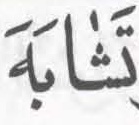 تَشَٰابَهَ